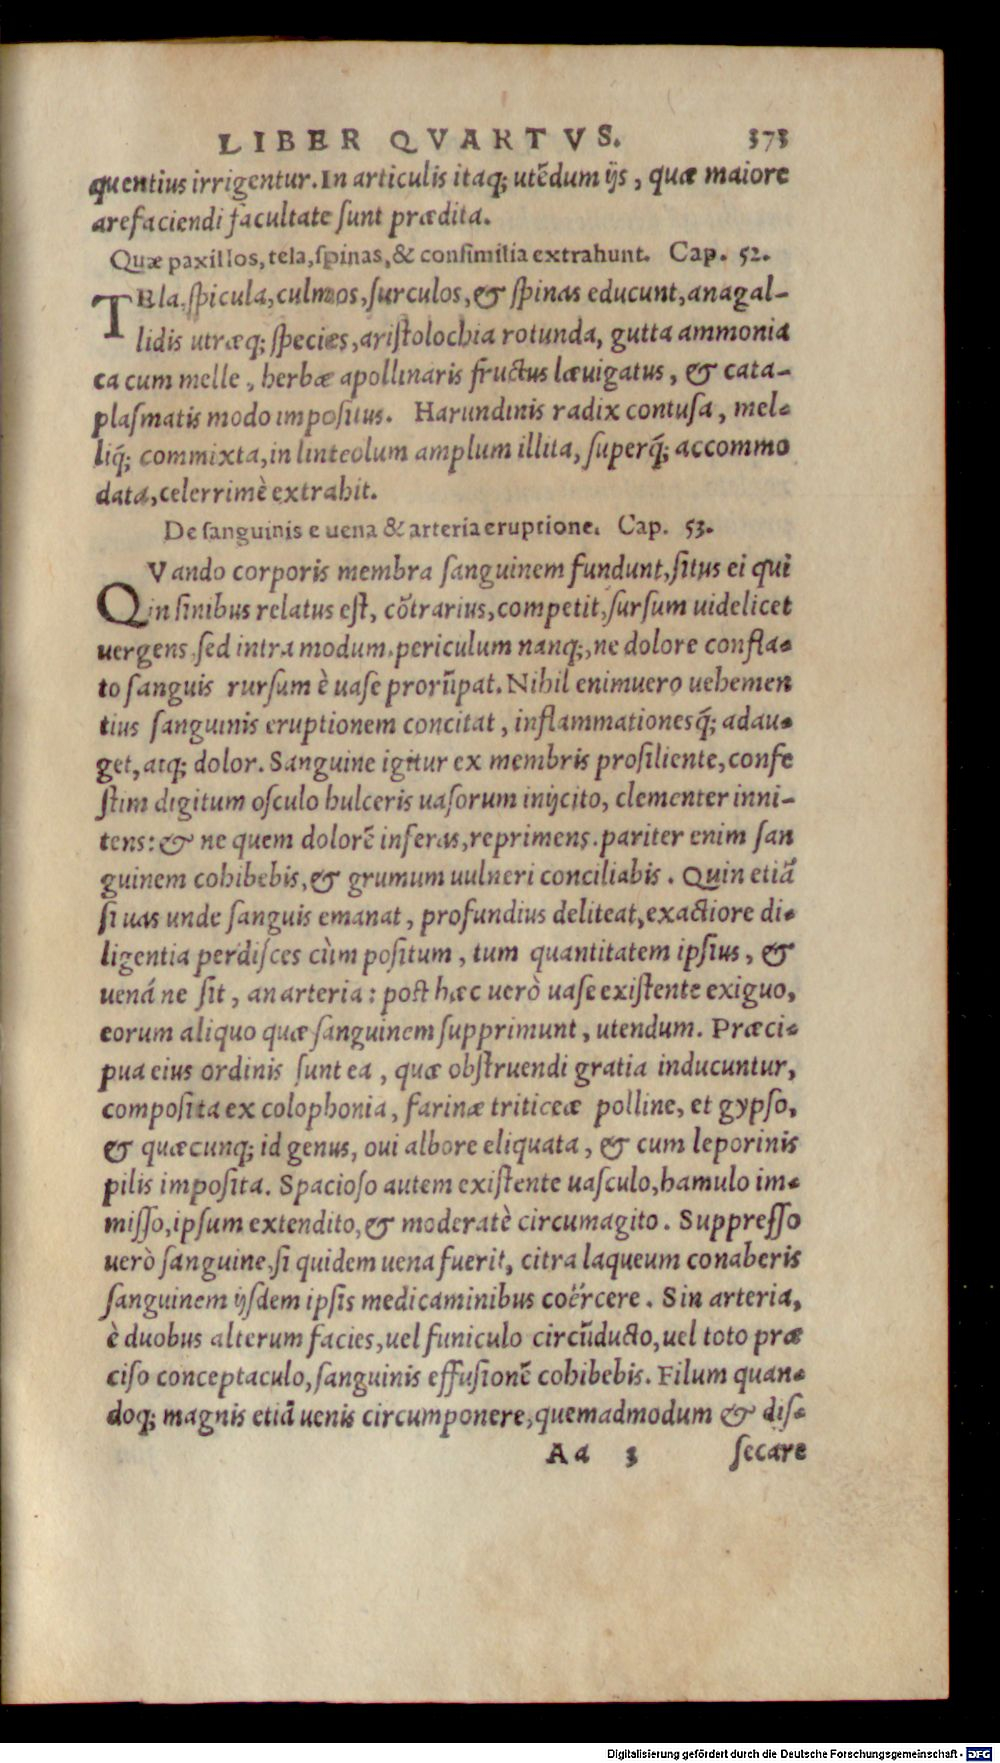 LIBER QVARTVS. 373
quentius irrigentur. In articulis itaq; utẽdum ijs, quæ maiore
arefaciendi facultate sunt prædita.
Quæ paxillos, tela, spinas, & consimilia extrahunt. Cap. 52.
TEla, spicula, culmos, surculos, & spinas educunt, anagal-
lidis utræq; species, aristolochia rotunda, gutta ammonia
ca cum melle, herbæ apollinaris fructus læuigatus, & cata-
plasmatis modo impositus. Harundinis radix contusa, mel-
liq́; commixta, in linteolum amplum illita, superq́; accommo
data, celerrimè extrahit.
De sanguinis e uena & arteria eruptione. Cap. 53.
QVando corporis membra sanguinem fundunt, situs ei qui
in sinibus relatus est, cõtrarius, competit, sursum uidelicet
uergens, sed intra modum. periculum nanq;, ne dolore confla-
to sanguis rursum è uase prorũpat. Nihil enimuero uehemen
tius sanguinis eruptionem concitat, inflammationesq́; adau-
get, atq; dolor. Sanguine igitur ex membris prosiliente, confe
stim digitum osculo hulceris uasorum inijcito, clementer inni-
tens: & ne quem dolorẽ inferas, reprimens. pariter enim san
guinem cohibebis, & grumum uulneri conciliabis. Quin etiã
si uas unde sanguis emanat, profundius deliteat, exactiore di-
ligentia perdisces cùm positum, tum quantitatem ipsius, &
uená ne sit, an arteria: post hæc uerò uase existente exiguo,
eorum aliquo quæ sanguinem supprimunt, utendum. Præci-
pua eius ordinis sunt ea, quæ obstruendi gratia inducuntur,
composita ex colophonia, farinæ triticeæ polline, et gypso,
& quæcunq; id genus, oui albore eliquata, & cum leporinis
pilis imposita. Spacioso autem existente uasculo, hamulo im-
misso, ipsum extendito, & moderatè circumagito. Suppresso
uerò sanguine, si quidem uena fuerit, citra laqueum conaberis
sanguinem ijsdem ipsis medicaminibus coërcere. Sin arteria,
è duobus alterum facies, uel funiculo circũducto, uel toto præ
ciso conceptaculo, sanguinis effusionẽ cohibebis. Filum quan-
doq; magnis etiã uenis circumponere, quemadmodum & dis-
Aa 3 secare
Digitalisierung gefördert durch die Deutsche Forschungsgemeinschaft - DFG